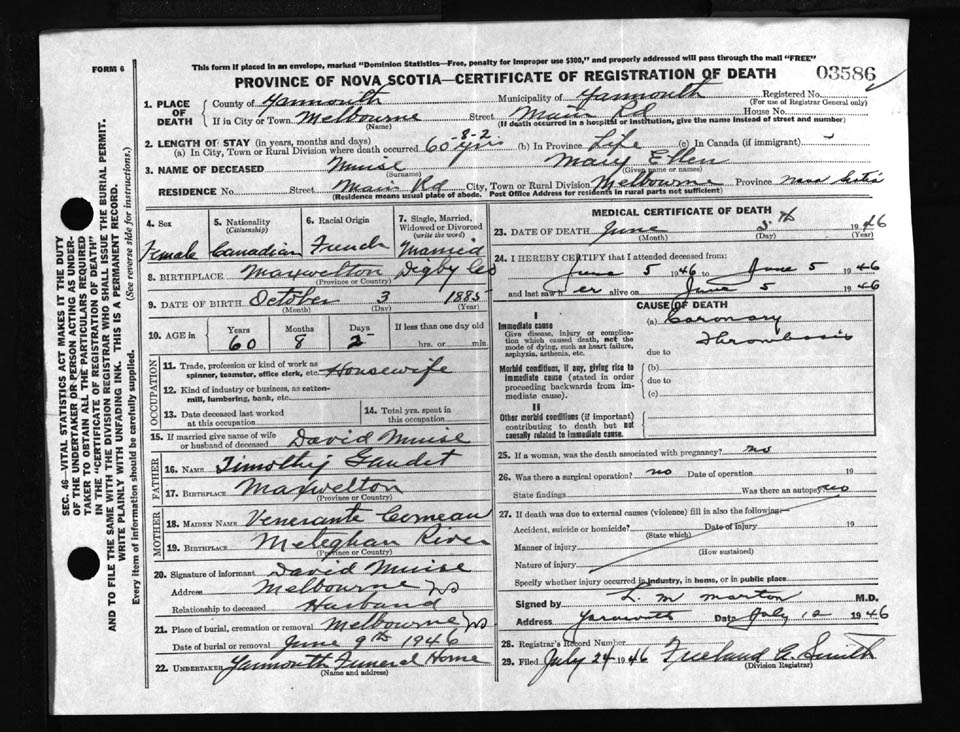 FORM 6
This form if placed in an envelope, marked "Dominion Statistics—Free, penalty for improper use $300," and properly addressed will pass through the mail "FREE"
PROVINCE OF NOVA SCOTIA—CERTIFICATE OF REGISTRATION OF DEATH
03586
1. PLACE OF DEATH
County of Yarmouth Municipality of Yarmouth Registered No.
(For use of Registrar General only)
If in City or Town Melbourne Street Main Rd House No.
(Name) (If death occurred in a hospital or institution, give the name instead of street and number)
2. LENGTH OF STAY (in years, months and days)
(a) In City, Town or Rural Division where death occurred 60-8-2 yrs (b) In Province Life (c) In Canada (if immigrant)
3. NAME OF DECEASED Muise Mary Ellen
(Surname) (Given name or names)
RESIDENCE No. Street Main Rd City, Town or Rural Division Melbourne Province Nova Scotia
(Residence means usual place of abode. Post Office Address for residents in rural parts not sufficient)
4. Sex Female
5. Nationality (Citizenship) Canadian
6. Racial Origin French
7. Single, Married, Widowed or Divorced (write the word) Married
8. BIRTHPLACE Maxwelton Digby Co
(Province or Country)
9. DATE OF BIRTH October 3 1885
(Month) (Day) (Year)
10. AGE in Years 60 Months 8 Days 2 If less than one day old hrs. or min.
OCCUPATION
11. Trade, profession or kind of work as spinner, teamster, office clerk, etc. Housewife
12. Kind of industry or business, as cotton-mill, lumbering, bank, etc.
13. Date deceased last worked at this occupation
14. Total yrs. spent in this occupation
15. If married give name of wife or husband of deceased David Muise
FATHER
16. NAME Timothy Gaudet
17. BIRTHPLACE Maxwelton
(Province or Country)
MOTHER
18. MAIDEN NAME Venerante Comeau
19. BIRTHPLACE Meteghan River
(Province or Country)
20. Signature of informant David Muise
Address Melbourne NS
Relationship to deceased Husband
21. Place of burial, cremation or removal Melbourne NS
Date of burial or removal June 9th 1946
22. UNDERTAKER Yarmouth Funeral Home
(Name and address)
MEDICAL CERTIFICATE OF DEATH
23. DATE OF DEATH June 5th 1946
(Month) (Day) (Year)
24. I HEREBY CERTIFY that I attended deceased from:
June 5 1946 to June 5 1946
and last saw her alive on June 5 1946
CAUSE OF DEATH
I
Immediate cause
Give disease, injury or complication which caused death, not the mode of dying, such as heart failure, asphyxia, asthenia, etc.
(a) Coronary Thrombosis
due to
Morbid conditions, if any, giving rise to immediate cause (stated in order proceeding backwards from immediate cause).
(b)
due to
(c)
II
Other morbid conditions (if important) contributing to death but not causally related to immediate cause.
25. If a woman, was the death associated with pregnancy? no
26. Was there a surgical operation? no Date of operation 19
State findings Was there an autopsy no
27. If death was due to external causes (violence) fill in also the following:—
Accident, suicide or homicide? Date of injury 19
(State which)
Manner of injury
(How sustained)
Nature of injury
Specify whether injury occurred in industry, in home, or in public place
Signed by L. M. Morton M.D.
Address Yarmouth Date July 12 1946
28. Registrar's Record Number
29. Filed July 24 1946 Freeland A. Smith
(Division Registrar)
SEC. 46—VITAL STATISTICS ACT MAKES IT THE DUTY
OF THE UNDERTAKER OR PERSON ACTING AS UNDER-
TAKER TO OBTAIN ALL THE PARTICULARS REQUIRED
IN THE "CERTIFICATE OF REGISTRATION OF DEATH"
AND TO FILE THE SAME WITH THE DIVISION REGISTRAR WHO SHALL ISSUE THE BURIAL PERMIT.
WRITE PLAINLY WITH UNFADING INK. THIS IS A PERMANENT RECORD.
Every item of information should be carefully supplied. (See reverse side for instructions.)